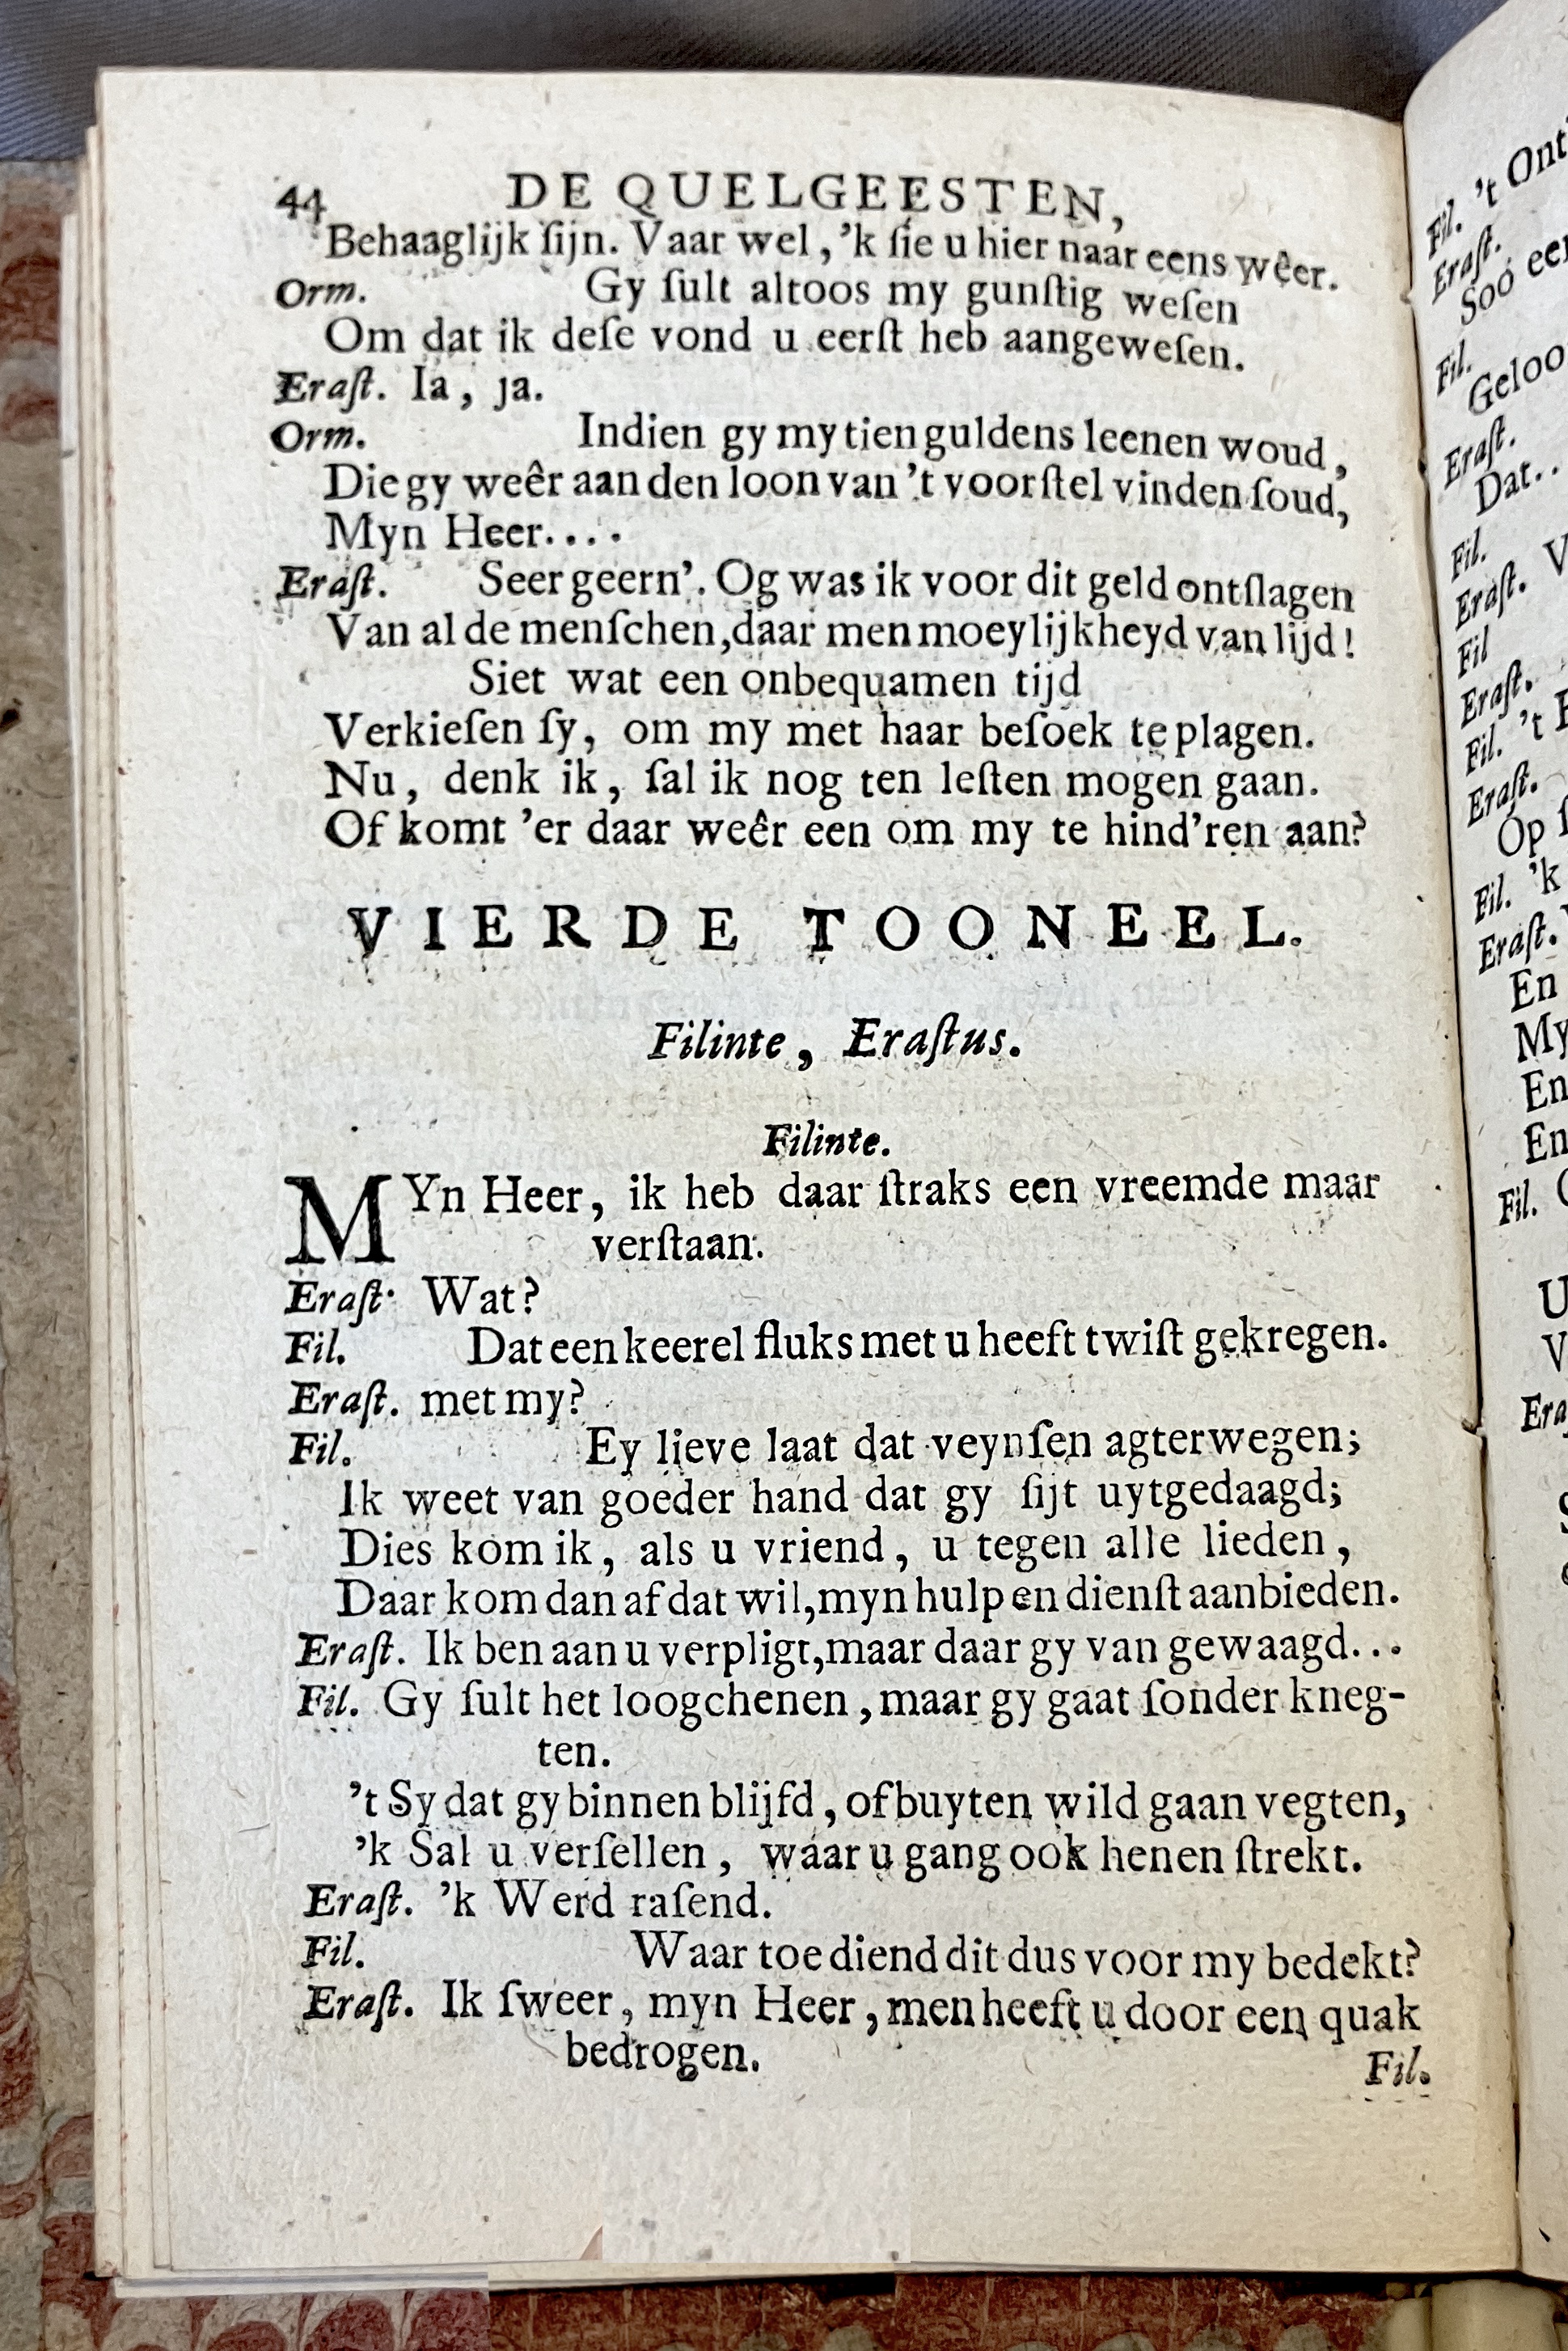 44 DE QUELGEESTEN,
Behaaglijk ſijn. Vaar wel, 'k ſie u hier naar eens wêer.
Orm. Gy ſult altoos my gunſtig weſen
Om dat ik deſe vond u eerſt heb aangeweſen.
Eraſt. Ia, ja.
Orm. Indien gy my tien guldens leenen woud,
Die gy weêr aan den loon van 't voorſtel vinden ſoud,
Myn Heer....
Eraſt. Seer geern'. Og was ik voor dit geld ontſlagen
Van al de menſchen, daar men moeylijkheyd van lijd!
Siet wat een onbequamen tijd
Verkieſen ſy, om my met haar beſoek te plagen.
Nu, denk ik, ſal ik nog ten leſten mogen gaan.
Of komt 'er daar weêr een om my te hind'ren aan?
VIERDE TOONEEL.
Filinte, Eraſtus.
Filinte.
MYn Heer, ik heb daar ſtraks een vreemde maar
verſtaan.
Eraſt. Wat?
Fil. Dat een keerel fluks met u heeft twiſt gekregen.
Eraſt. met my?
Fil. Ey lieve laat dat veynſen agterwegen;
Ik weet van goeder hand dat gy ſijt uytgedaagd;
Dies kom ik, als u vriend, u tegen alle lieden,
Daar kom dan af dat wil, myn hulp en dienſt aanbieden.
Eraſt. Ik ben aan u verpligt, maar daar gy van gewaagd...
Fil. Gy ſult het loogchenen, maar gy gaat ſonder kneg-
ten.
't Sy dat gy binnen blijfd, of buyten wild gaan vegten,
'k Sal u verſellen, waar u gang ook henen ſtrekt.
Eraſt. 'k Werd raſend.
Fil. Waar toe diend dit dus voor my bedekt?
Eraſt. Ik ſweer, myn Heer, men heeft u door een quak
bedrogen.
Fil.
Fil. 't Ont
Eraſt.
Soo
Fil.
Geloo
Eraſt.
Dat..
Fil.
Eraſt. V
Fil
Eraſt.
Fil. 't
Eraſt.
Op
Fil. 'k
Eraſt.
En
My
En
En
Fil.
U
V
Era